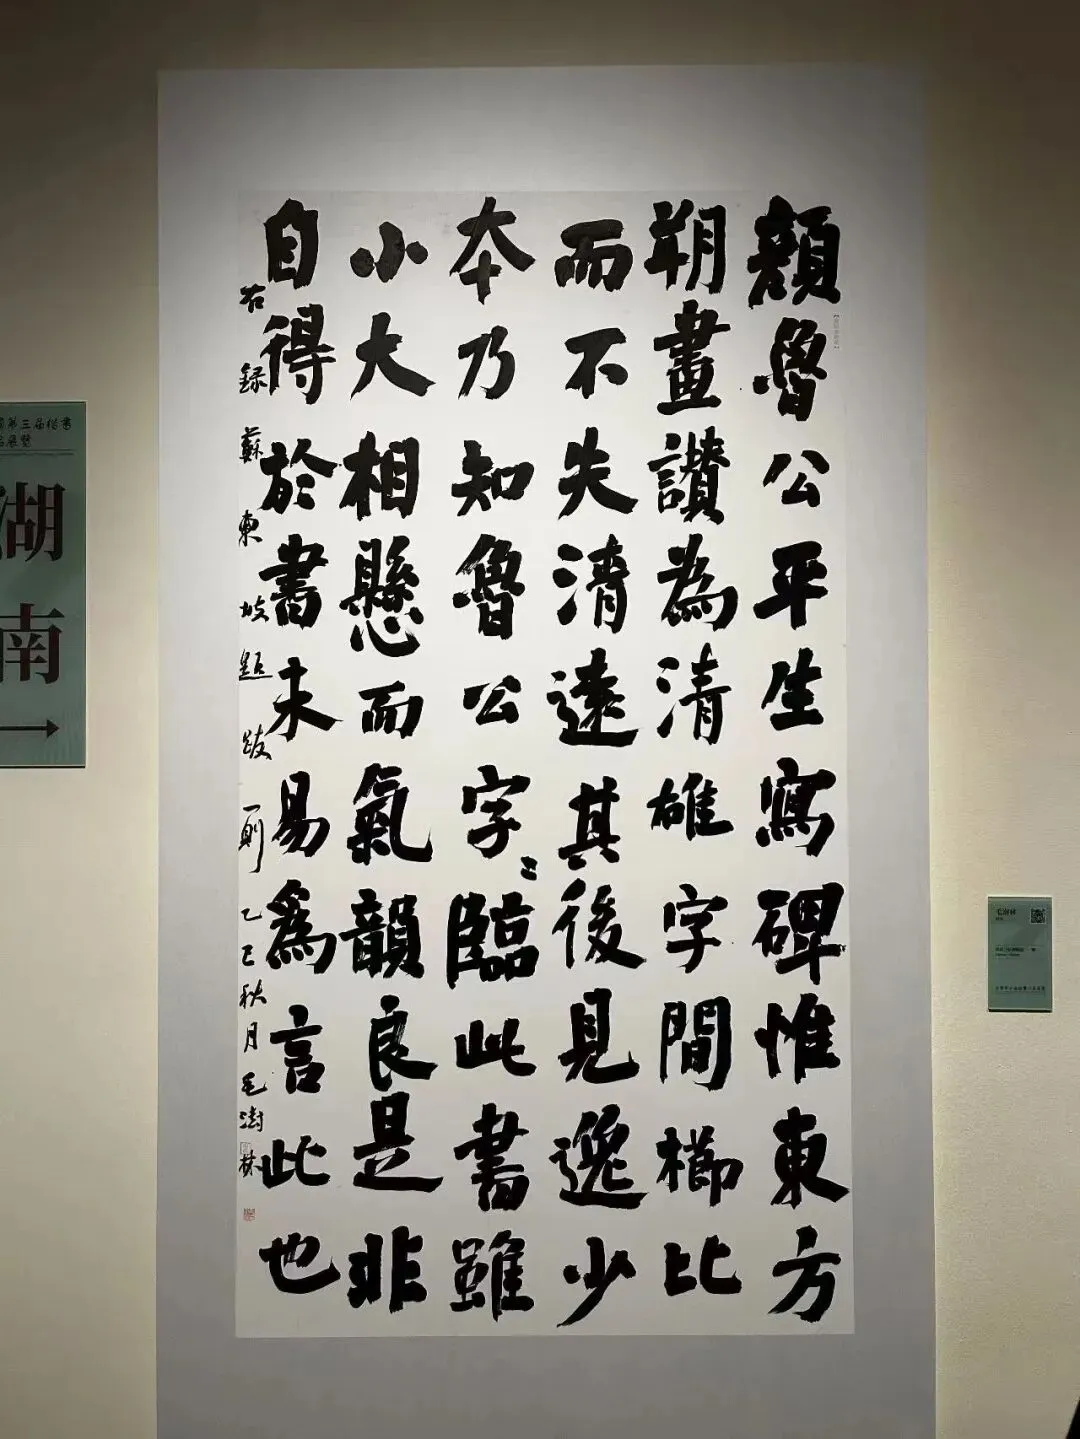 顏魯公平生寫碑惟東方
朔畫讚為清雄字間櫛比
而不失清遠其後見逸少
本乃知魯公字〻臨此書雖
小大相懸而氣韻良是非
自得於書未易為言此也
右録蘇東坡題跋一則乙巳秋月毛澍林
第三届楷書
展覽
湖
南
毛澍林